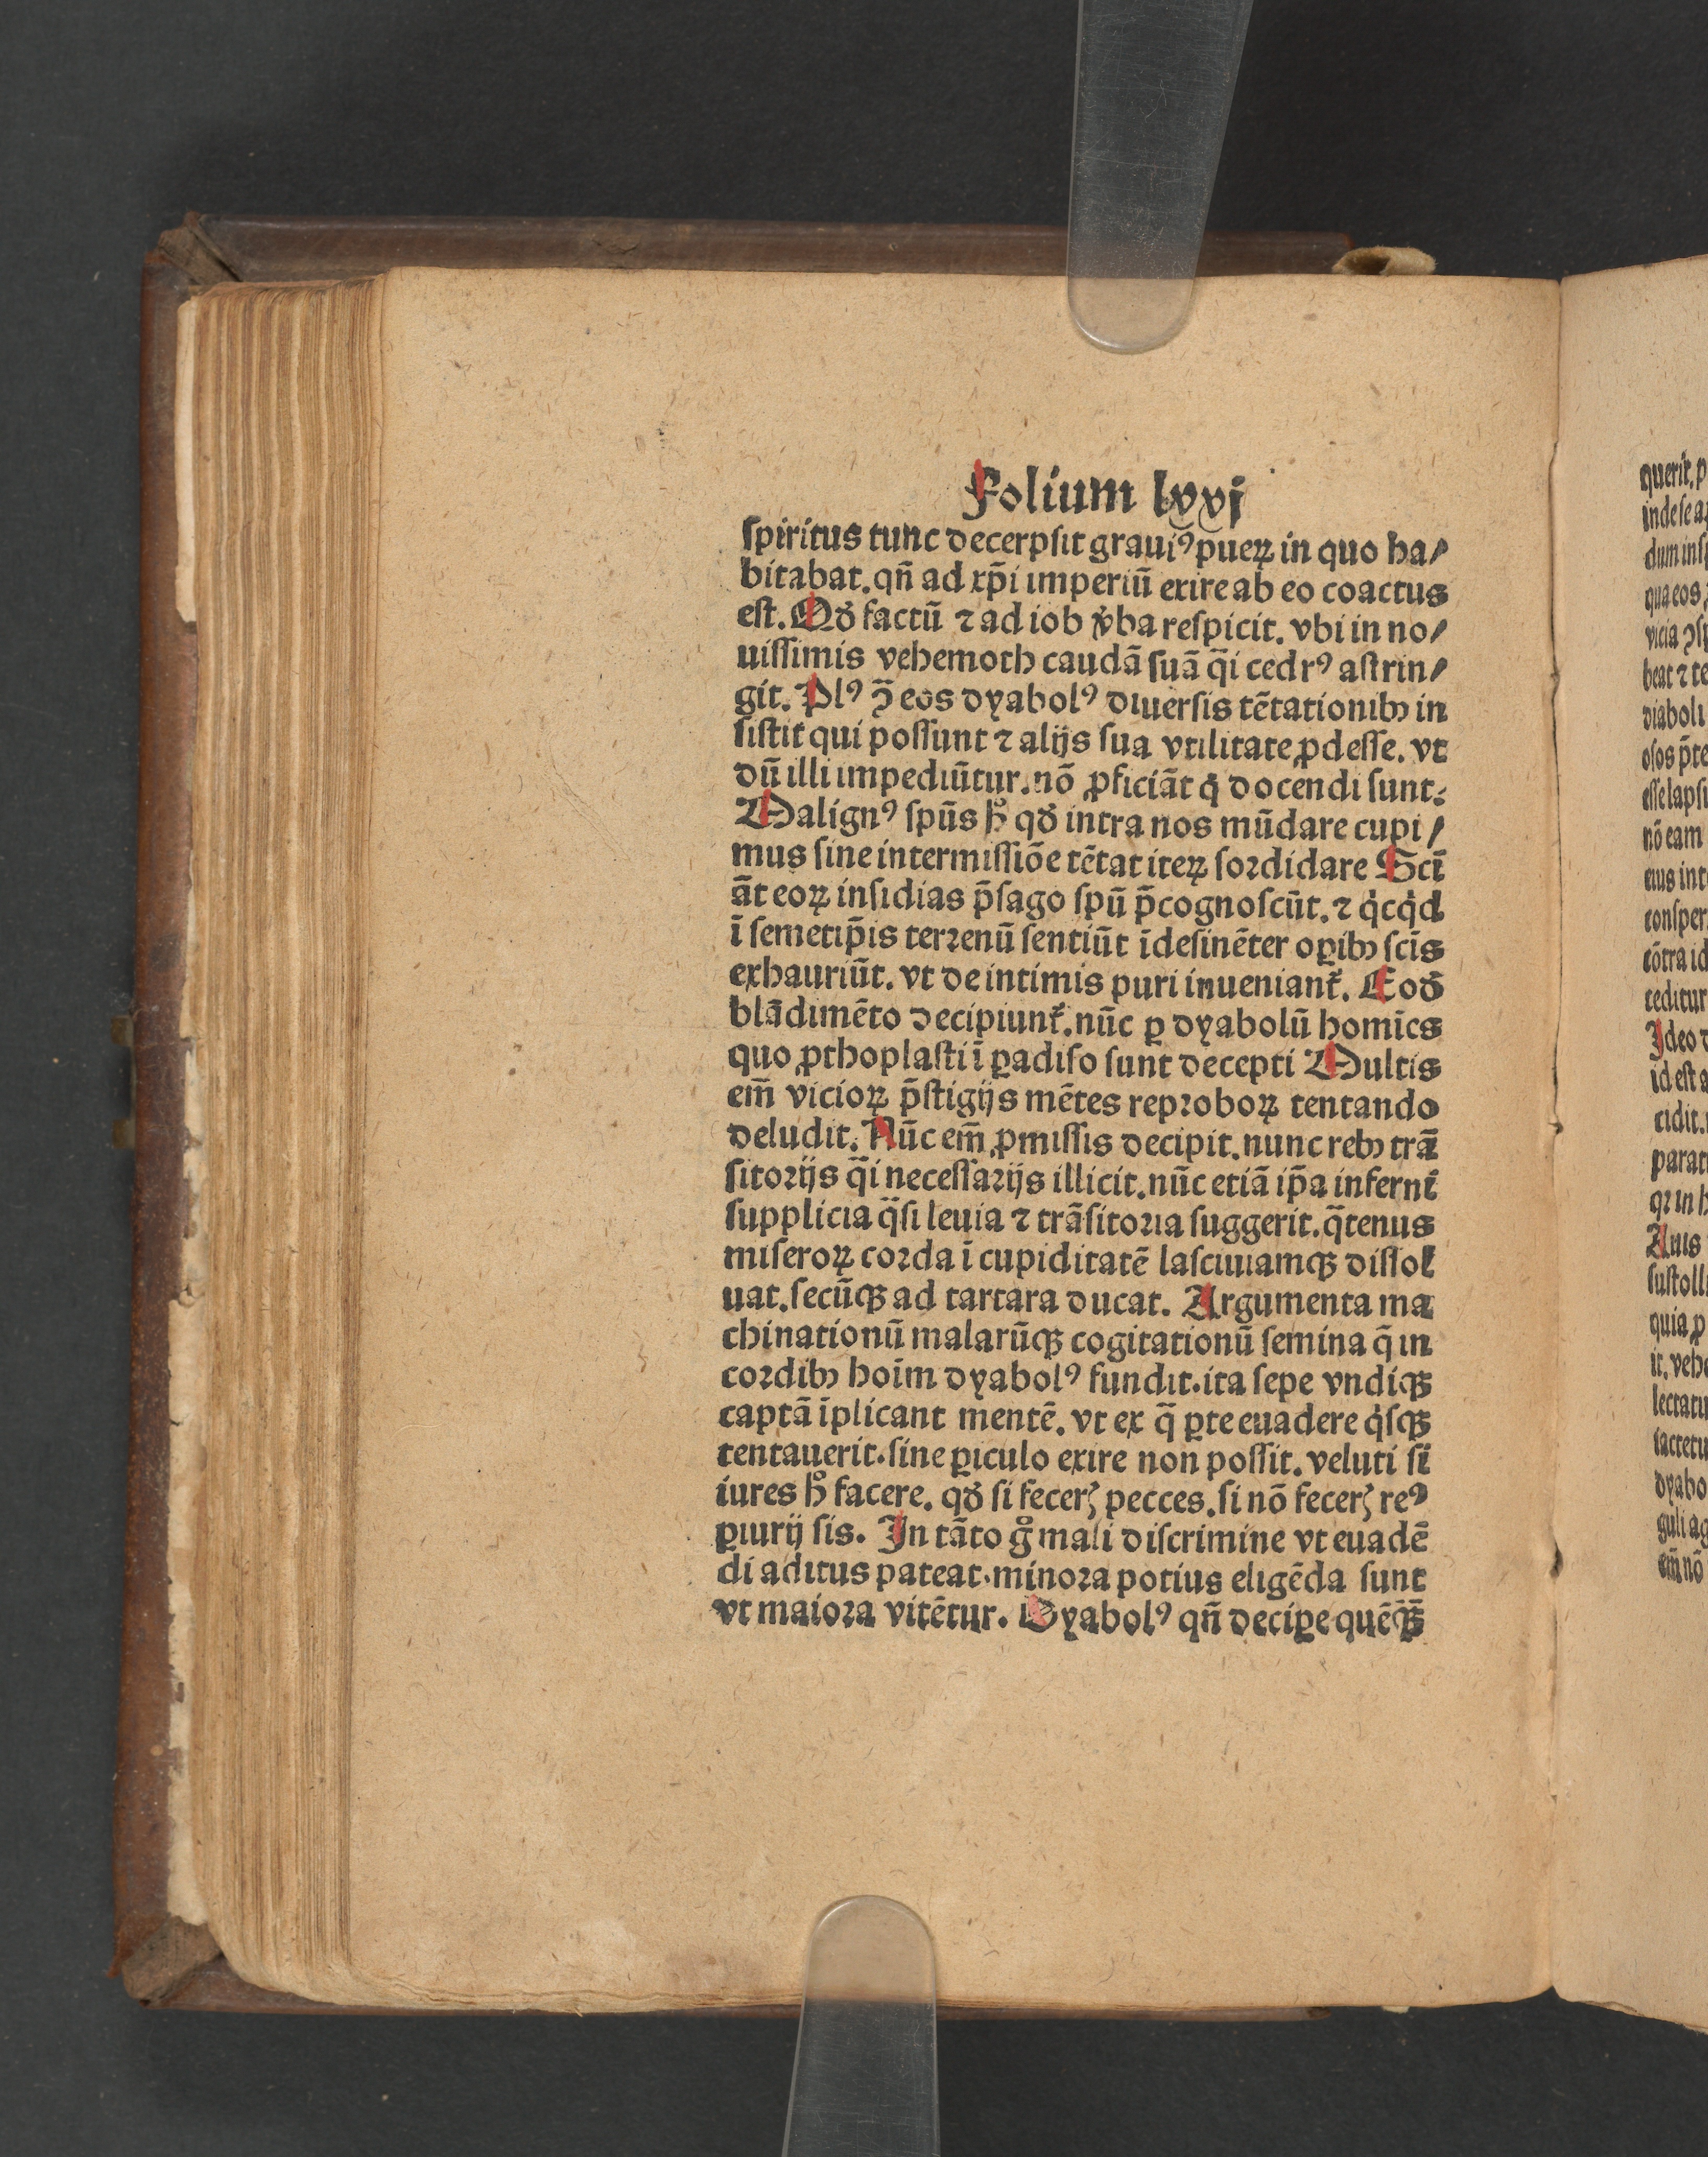 Folium lxxj
spiritus tunc decerpsit graui⁹ pueꝝ in quo ha/
bitabat. qn̄ ad xp̄i imperiū exire ab eo coactus
est. Qđ factū ⁊ ad iob v̓ba respicit. vbi in no/
uissimis vehemoth caudā suā q̄i cedr⁹ astrin/
git. Pl⁹ ꝯ̄ eos dyabol⁹ diuersis tētationibꝰ in
sistit qui possunt ⁊ alijs sua vtilitate ꝓdesse. vt
dū illi impediūtur. nō ꝓficiāt q̇ docendi sunt.
Malign⁹ spūs h̊ qđ intra nos mūdare cupi/
mus sine intermissiōe tētat iteꝝ sordidare Scī
āt eoꝝ insidias p̄sago spū p̄cognoscūt. ⁊ q̇cq̇d
ī semetip̄is terrenū sentiūt īdesinēter oꝑibꝰ scīs
exhauriūt. vt de intimis puri inueniant᷑. Eođ
blādimēto decipiunt᷑. nūc ꝑ dyabolū homīes
quo ꝓthoplasti ī ꝑadiso sunt decepti Multis
em̄ vicioꝝ p̄stigijs mētes reproboꝝ tentando
deludit. Nūc em̄ ꝓmissis decipit. nunc rebꝰ trā
sitorijs q̄i necessarijs illicit. nūc etiā ip̄a inferni
supplicia q̄si leuia ⁊ trāsitoria suggerit. q̄tenus
miseroꝝ corda ī cupiditatē lasciuiamqꝫ dissol
uat. secūqꝫ ad tartara ducat. Argumenta ma
chinationū malarūqꝫ cogitationū semina q̄ in
cordibꝰ hoīm dyabol⁹ fundit. ita sepe vndiqꝫ
captā īplicant mentē. vt ex q̄ ꝑte euadere q̇sqꝫ
tentauerit. sine ꝑiculo exire non possit. veluti si
iures h̊ facere. qđ si fecerꝭ pecces. si nō fecerꝭ re⁹
ꝑiurij sis. In tāto g̊ mali discrimine vt euadē
di aditus pateat. minora potius eligēda sunt
vt maiora vitētur. Dyabol⁹ qn̄ deciꝑe quēqꝫ̄